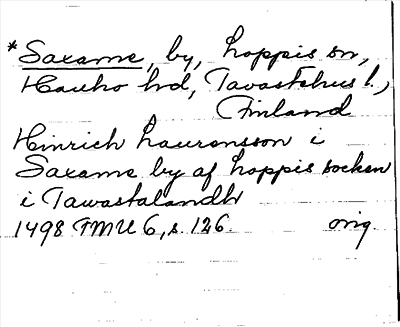 *Saxame, by, Loppis sn,
Hauho hd, Tavastehus l.,
Finland
Hinrich Laurensson i
Saxame by af Loppis socken
i Tawastalandh
1498 FMU 6, s. 126. orig.